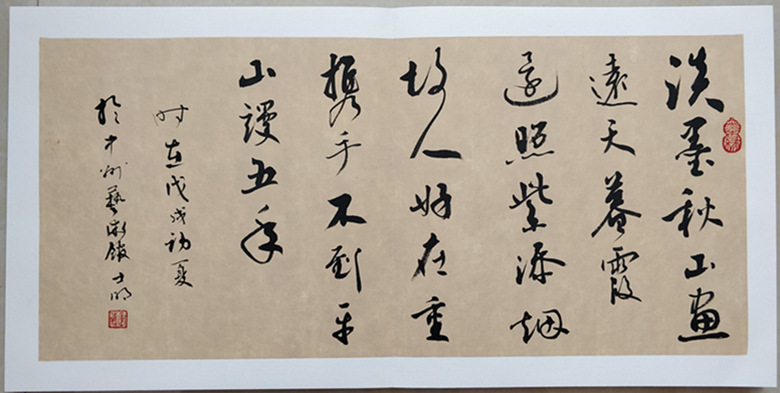 淡墨秋山畫
遠天暮霞
還照紫添烟
故人好在重
携手不到平
山謾五年
时在戊戌初夏
於中州藝術館士明